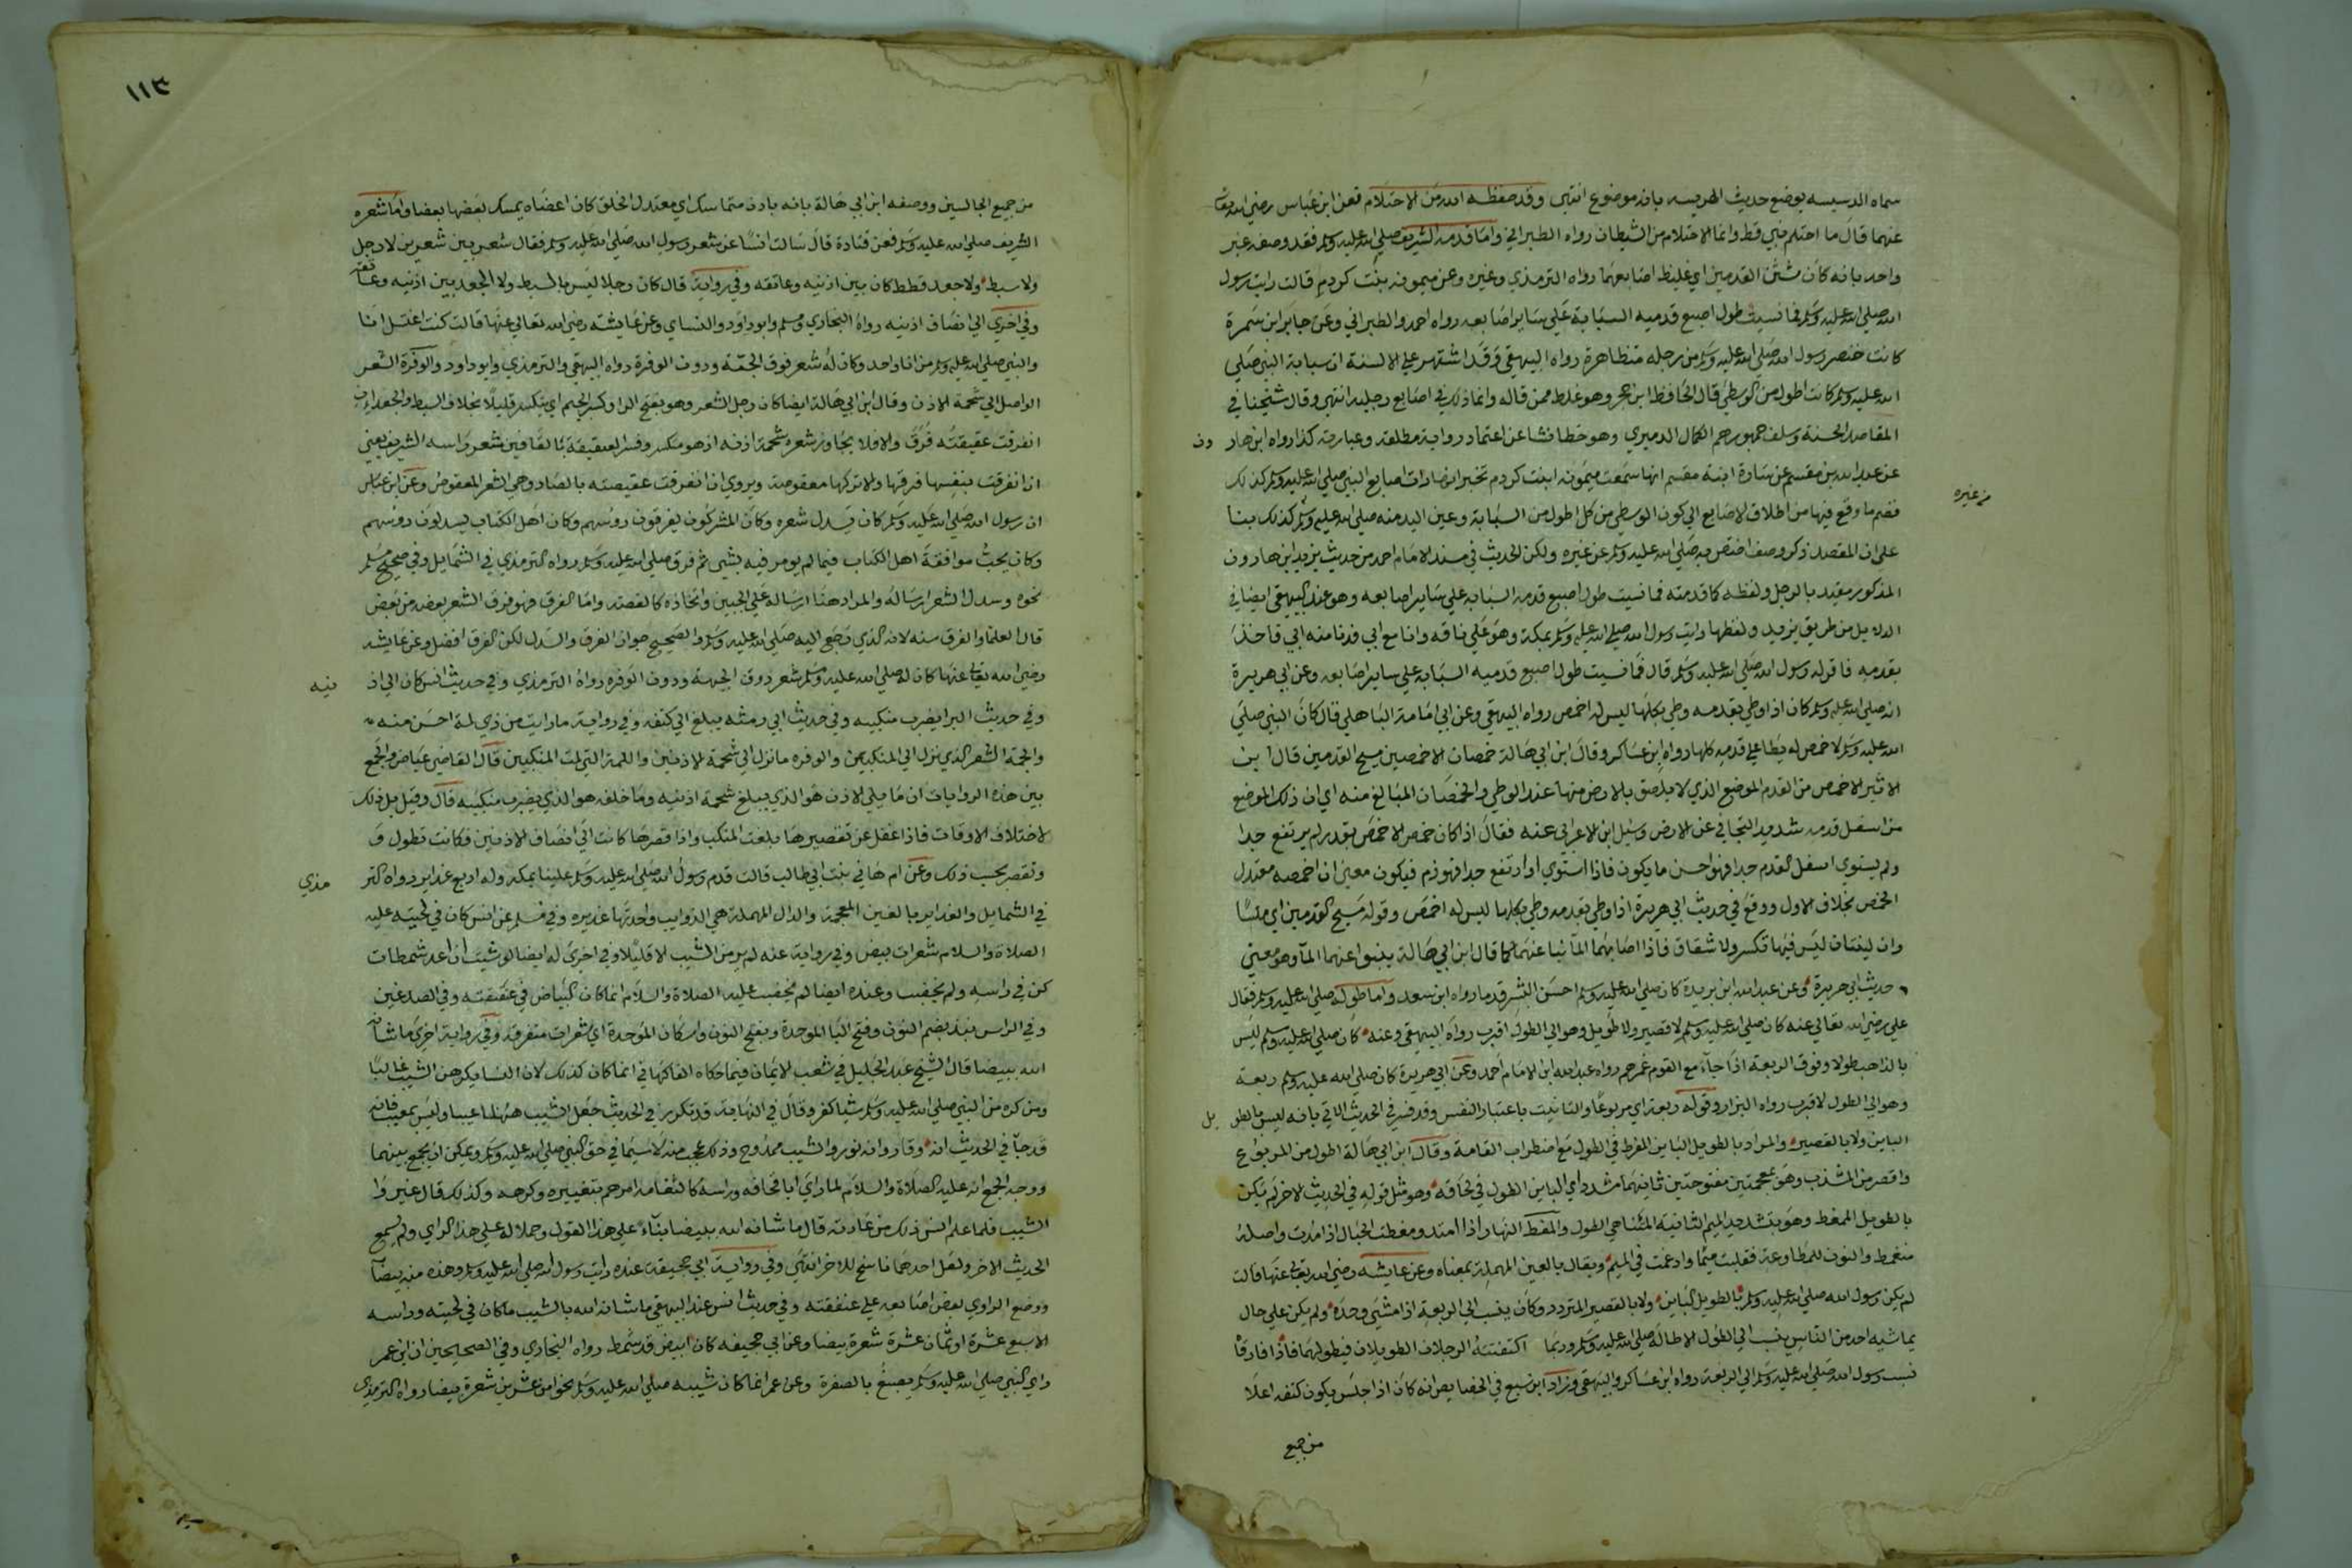 سماه الدسيسه بوضع حديث الهريسه بانه موضوع انتهى وقد حفظه الله من الاحتلام فعن ابن عباس رضي الله تعالى
عنهما قال ما احتلم نبي قط وانما الاحتلام من الشيطان رواه الطبراني واما قدمه الشريف صلي الله عليه وسلم فقد وصفه غير
واحد بانه كان شثن القدمين اي غليظ اصابعهما رواه الترمذي وغيره وعن ميمونه بنت كردم قالت رايت رسول
الله صلي الله عليه وسلم فما نسيت طول اصبع قدميه السبابة علي ساير اصابعه رواه احمد والطبراني وعن جابر ابن سمرة
كانت خنصر رسول الله صلي الله عليه وسلم من رجله متظاهرة رواه البيهقي وقد اشتهر علي الالسنة ان سبابة النبي صلي
الله عليه وسلم كانت اطول من الوسطي قال الحافظ ابن حجر وهو غلط ممن قاله وانما ذلك في اصابع رجليه انتهي وقال شيخنا في
المقاصد الحسنة وسلف جمهورهم الكمال الدميري وهو خطا نشا عن اعتماد رواية مطلقة وعبارته كذا رواه ابن هار ون
عن عبد الله بن مقسم عن سارة ابنة مقسم انها سمعت ميمونه ابنت كردم تخبر انها رات اصابع النبي صلي الله عليه وسلم كذلك
من غيره
فضم ما وقع فيها من اطلاق الاصابع الي كون الوسطي من كل اطول من السبابة وعين اليد منه صلي الله عليه وسلم كذلك بنا
علي ان المقصد ذكر وصف اختص به صلي الله عليه وسلم عن غيره ولكن الحديث في مسند الامام احمد من حديث يزيد ابن هارون
المذكور مقيد بالرجل ولفظه كاقدمته فما نسيت طول اصبع قدمه السبابه علي ساير اصابعه وهو عند البيهقي ايضا في
الدلايل من طريق يزيد ولفظها رايت رسول الله صلي الله عليه وسلم بمكة وهو علي ناقه وانا مع ابي فدنا منه ابي فاخذ
بقدمه فاقر له رسول الله صلي الله عليه وسلم قال فما نسيت طول اصبع قدميه السبابه علي ساير اصابعه وعن ابي هريرة
انه صلي الله عليه وسلم كان اذا وطي بقدمه وطي بكلها ليس له اخمص رواه البيهقي وعن ابي امامة الباهلي قال كان النبي صلي
الله عليه وسلم لا خمص له يطا علي قدمه كلها رواه ابن عساكر وقال ابن ابي هالة خمصان الاخمصين مسيح القدمين قال ابن
الاثير الاخمص من القدم الموضع الذي لا يلصق بالارض منها عند الوطي والخمصان المبالغ منه اي ان ذلك الموضع
من اسفل قدمه شديد التجافي عن الارض وسئل ابن الاعرابي عنه فقال اذا كان خمص الاخمص بقدر لم يرتفع جدا
ولم يستوي اسفل القدم جدا فهو احسن ما يكون فاذا استوي او ارتفع جدا فهو ذم فيكون معني ان اخمصه معتدل
الخمص بخلاف الاول ووقع في حديث ابي هريرة اذا وطي بقدمه وطي بكلها ليس له اخمص وقوله مسيح القدمين اي ملسا
وان لينتان ليس فيهما تكسر ولا شقاق فاذا اصابهما المآ نبا عنهما كما قال ابن ابي هالة ينبو عنهما المآ وهو معني
حديث ابي هريرة وعن عبد الله ابن بريدة كان صلي الله عليه وسلم احسن البشر قدما رواه ابن سعد واما طوله صلي الله عليه وسلم فقال
علي رضي الله تعالي عنه كان صلي الله عليه وسلم لا قصير ولا طويل وهو الي الطول اقرب رواه البيهقي وعنه كان صلي الله عليه وسلم ليس
بالذاهب طولا وفوق الربعة اذا جاء مع القوم غمرهم رواه عبد الله ابن الامام احمد وعن ابي هريرة كان صلي الله عليه وسلم ربعة
وهو الي الطول لاقرب رواه البزار وقوله ربعة اي مربوعا والتانيث باعتبار النفس وقد فسر في الحديث الاتي بانه ليس بالطو يل
الباين ولا بالقصير والمراد بالطويل الباين المفرط في الطول مع اضطراب القامة وقال ابن ابي هالة اطول من المربوع
واقصر من المشذب وهو بمعجمتين مفتوحتين ثانيهما مشدد اي الباين الطول في نحافة وهو مثل قوله في الحديث الاخر لم يكن
بالطويل الممغط وهو بتشديد الميم الثانية المتناهي الطول وامغط النهار اذا امتد ومغطت الحبال اذا مدت واصله
منغمط والنون للمطاوعة فقلبت ميما وادغمت في الميم ويقال بالعين المهملة بمعناه وعن عايشه رضي الله تعالي عنها قالت
لم يكن رسول الله صلي الله عليه وسلم بالطويل الباين ولا بالقصير المتردد وكان ينسب الي الربعة اذا مشي وحده ولم يكن علي حال
يماشيه احد من الناس ينسب الي الطول الا طاله صلي الله عليه وسلم وربما اكتنفته الرجلان الطويلان فيطولهما فاذا فارقاه
نسب رسول الله صلي الله عليه وسلم الي الربعة رواه ابن عساكر والبيهقي وزاد ابن سبع في الخصايص انه كان اذا جلس يكون كتفه اعلا
من جميع
١١٣
من جميع الجالسين ووصفه ابن ابي هالة بانه بادن متماسك اي معتدل الخلق كان اعضاه يمسك بعضها بعضا واما شعره
الشريف صلي الله عليه وسلم فعن قتادة قال سالت انسا عن شعر رسول الله صلي الله عليه وسلم فقال شعر بين شعرين لا رجل
ولا سبط ولا جعد قطط كان بين اذنيه وعاتقه وفي رواية قال كان رجلا ليس بالسبط ولا الجعد بين اذنيه وعاتقه
وفي اخري الي انصاف اذنيه رواه البخاري ومسلم وابو داود والنساي وعن عايشة رضي الله تعالي عنها قالت كنت اغتسل انا
والنبي صلي الله عليه وسلم من انا واحد وكان له شعر فوق الجمة ودون الوفرة رواه البيهقي والترمذي وابو داود والوفرة الشعر
الواصل الي شحمة الاذن وقال ابن ابي هالة ايضا كان رجل الشعر وهو بفتح الرا وكسر الجيم اي يتكسر قليلا بخلاف السبط والجعد ان
انفرقت عقيقته فرق والا فلا يجاوز شعره شحمة اذنه اذ هو منكسر وفسر العقيقة بالقافين شعر راسه الشريف يعني
ان انفرقت بنفسها فرقها والا تركها معقوصة ويروي ان انفرقت عقيصته بالصاد وهي الشعر المعقوص وعن ابن عباس
ان رسول الله صلي الله عليه وسلم كان يسدل شعره وكان المشركون يفرقون روسهم وكان اهل الكتاب يسدلون روسهم
وكان يحب موافقة اهل الكتاب فيما لم يومر فيه بشي ثم فرق صلي الله عليه وسلم رواه الترمذي في الشمايل وفي صحيح مسلم
نحوه وسدل الشعر ارساله والمراد هنا ارساله علي الجبين واتخاذه كالقصة واما الفرق فهو فرق الشعر بعضه من بعض
قال العلما والفرق سنه لانه الذي رجع اليه صلي الله عليه وسلم والصحيح جواز الفرق والسدل لكن الفرق افضل وعن عايشه
رضي الله تعالي عنها كان له صلي الله عليه وسلم شعر دون الجمة ودون الوفره رواه الترمذي وفي حديث انس كان الي اذ نيه
وفي حديث البرا يضرب منكبيه وفي حديث ابي رمثه يبلغ الي كتفه وفي رواية ما رايت من ذي لمة احسن منه
والجمة الشعر الذي نزل الي المنكبين والوفره ما نزل الي شحمة الاذنين واللمة التي المت المنكبين قال القاضي عياض والجمع
بين هذه الروايات ان ما يلي الاذن هو الذي يبلغ شحمة اذنيه وما خلفه هو الذي يضرب منكبيه قال وقيل بل ذلك
لاختلاف الاوقات فاذا غفل عن تقصيرها بلغت المنكب واذا قصرها كانت الي انصاف الاذنين فكانت تطول و
وتقصر بحسب ذلك وعن ام هاني بنت ابي طالب قالت قدم رسول الله صلي الله عليه وسلم علينا بمكه وله اربع غداير رواه التر مذي
في الشمايل والغداير بالغين المعجمة والدال المهملة هي الذوايب واحدتها غديره وفي مسلم عن انس كان في لحيته عليه
الصلاة والسلام شعرات بيض وفي رواية عنه لم ير من الشيب الا قليلا وفي اخري له ايضا لو شيت ان اعد شمطات
كن في راسه ولم يخضب وعنده ايضا لم يخضب عليه الصلاة والسلام انما كان البياض في عنفقته وفي الصدغين
وفي الراس نبذ بضم النون وفتح البا الموحدة وبفتح النون واسكان الموحدة اي شعرات متفرقه وفي رواية اخري ما شانه
الله ببيضا قال الشيخ عبد الجليل في شعب الايمان فيما حكاه الفاكهاني انما كان كذلك لان النسا يكرهن الشيب غالبا
ومن كره من النبي صلي الله عليه وسلم شيا كفر وقال في النهاية قد تكرر في الحديث جعل الشيب ههنا عيبا وليس بعيب فانه
قد جآ في الحديث انه وقار وانه نور والشيب ممدوح وذلك عجب منه لا سيما في حق النبي صلي الله عليه وسلم ويمكن ان يجمع بينهما
ووجه الجمع انه عليه الصلاة والسلام لما راي ابا قحافه وراسه كالثغامه امرهم بتغييره وكرهه وكذلك قال غيروا
الشيب فلما علم انس ذلك من عادته قال ما شانه الله ببيضا بنآء علي هذا القول وحملا له علي هذا الراي ولم يسمع
الحديث الاخر ولعل احدهما ناسخ للاخر انتهي وفي رواية ابي جحيفة عنده رايت رسول الله صلي الله عليه وسلم وهذه منه بيضآ
ووضع الراوي بعض اصابعه علي عنفقته وفي حديث انس عند البيهقي ما شانه الله بالشيب ما كان في لحيته وراسه
الا سبع عشرة او ثمان عشرة شعرة بيضا وعن ابي جحيفه كان ابيض قد شمط رواه البخاري وفي الصحيحين ان ابن عمر
راي النبي صلي الله عليه وسلم يصبغ بالصفرة وعن عمر انما كان شيبه صلي الله عليه وسلم نحوا من عشرين شعرة بيضا رواه الترمذي